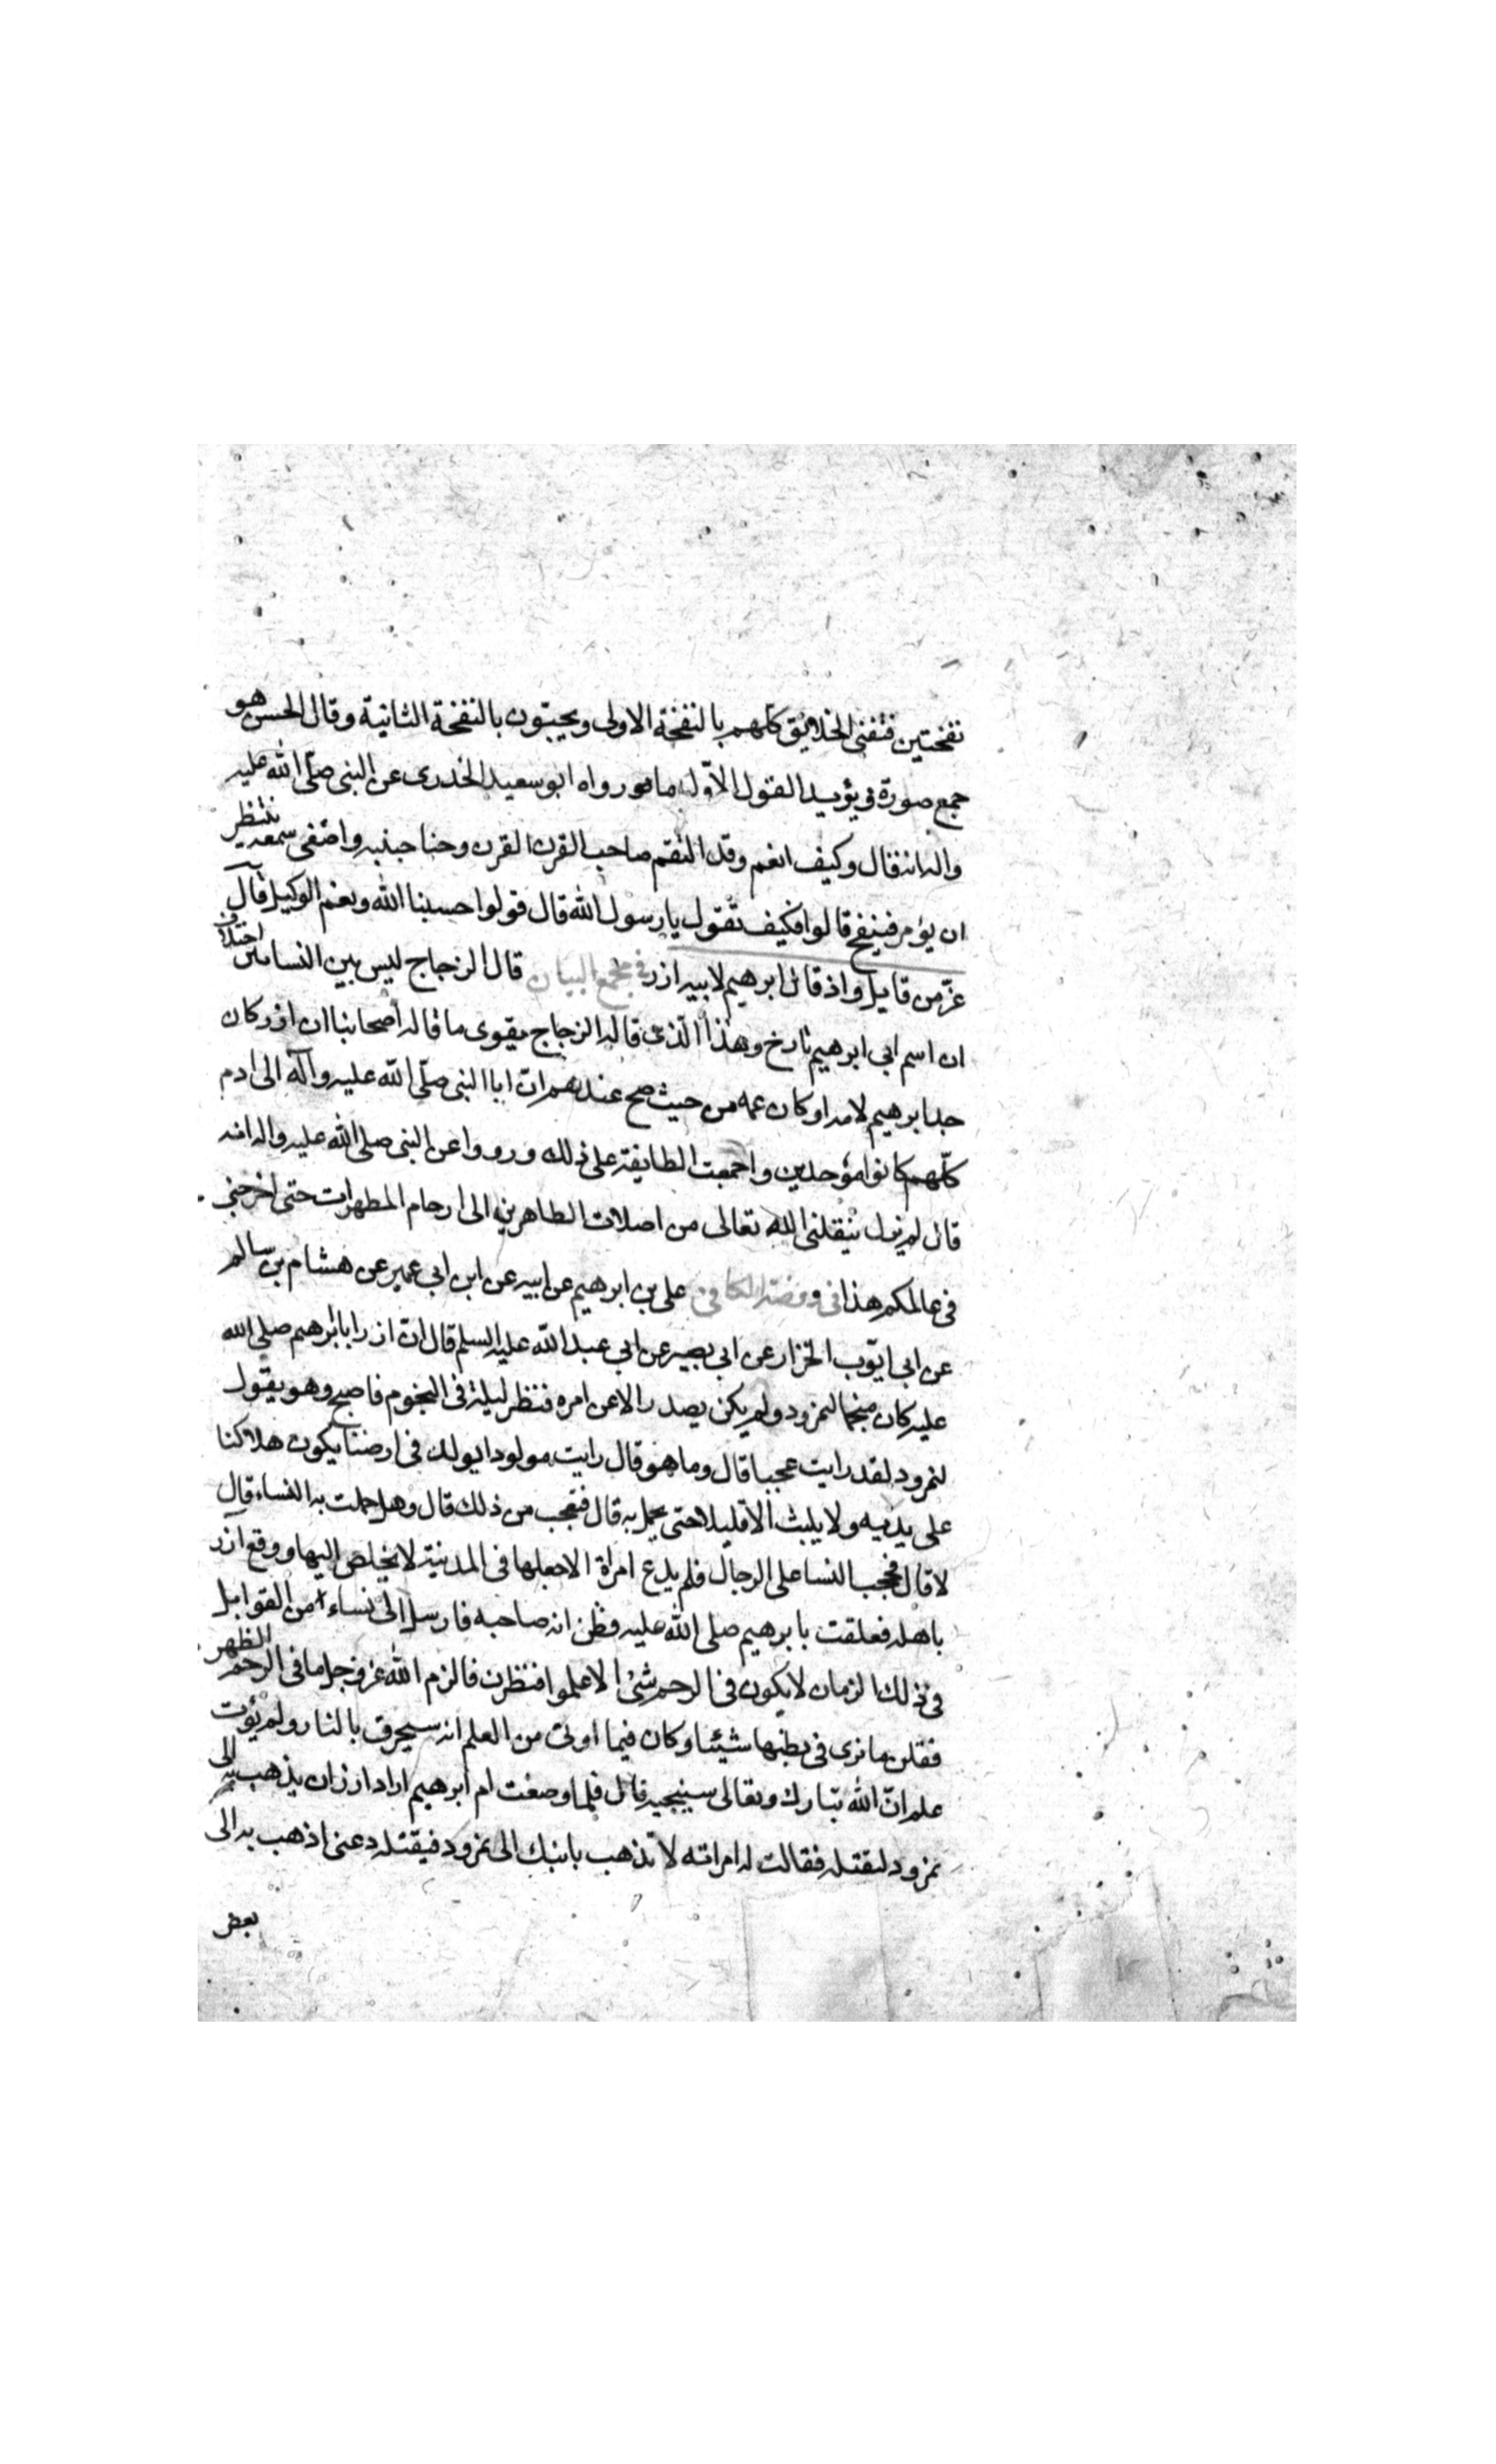 نفختين فتفنى الخلايق كلهم بالنفخة الاولى ويحيون بالنفخة الثانية وقال الحسن هو
جمع صورة في يؤيد القول الاول ما مور رواه ابو سعيد الخدرى عن النبى صلى الله عليه
واله انه قال وكيف انعم وقد التقم صاحب القرن القرن وحنا جبنيه واصغى سمعه ينتظر
ان يؤمر فينفخ قالوا فكيف نقول يا رسول الله قال قولوا حسبنا الله ونعم الوكيل قال
عز من قايل واذ قال ابرهيم لابيه ازر في مجمع البيان قال الزجاج ليس بين النسابين اختلاف
ان اسم ابى ابرهيم تارخ وهذا الذى قاله الزجاج يقوى ما قاله اصحابنا ان ازر كان
جد ابرهيم لامه او كان عمه من حيث صح عندهم ان ابا النبى صلى الله عليه وآله الى ادم
كلهم كانوا موحدين واجمعت الطايفة على ذلك ورووا عن النبى صلى الله عليه واله انه
قال لم يزل ينقلنى الله تعالى من اصلاب الطاهرين الى ارحام المطهرات حتى اخرجنى
فى عالمكم هذا فى روضة الكافى على بن ابرهيم عن ابيه عن ابن ابى عمير عن هشام بن سالم
عن ابى ايوب الخزاز عن ابى بصير عن ابى عبد الله عليه السلم قال ان ازر ابا ابرهيم صلى الله
عليه كان منجما لنمرود ولم يكن يصدر الا عن امره فنظر ليلة فى النجوم فاصبح وهو يقول
لنمرود لقد رايت عجبا قال وما هو قال رايت مولودا يولد فى ارضنا يكون هلاكنا
على يديه ولا يلبث الا قليلا حتى يحمل به قال فتعجب من ذلك قال وهل حملت به النساء قال
لا قال فحجب النسا على الرجال فلم يدع امراة الا جعلها فى المدينة لا يخلص اليها ووقع ازر
باهله فعلقت بابرهيم صلى الله عليه وظن انه صاحبه فارسل الى نساء من القوابل
فى ذلك الزمان لا يكون فى الرحم شئ الا علموا فنظرن فالزم الله عز وجل ما فى الرحم الظهر
فقلن ما نرى فى بطنها شيئا وكان فيما اوتى من العلم انه سيحرق بالنار ولم يؤت
علم ان الله تبارك وتعالى سينجيه قال فلما وضعت ام ابرهيم اراد ازر ان يذهب به الى
نمرود ليقتله فقالت له امراته لا تذهب بابنك الى نمرود فيقتله دعنى اذهب به الى
بعض